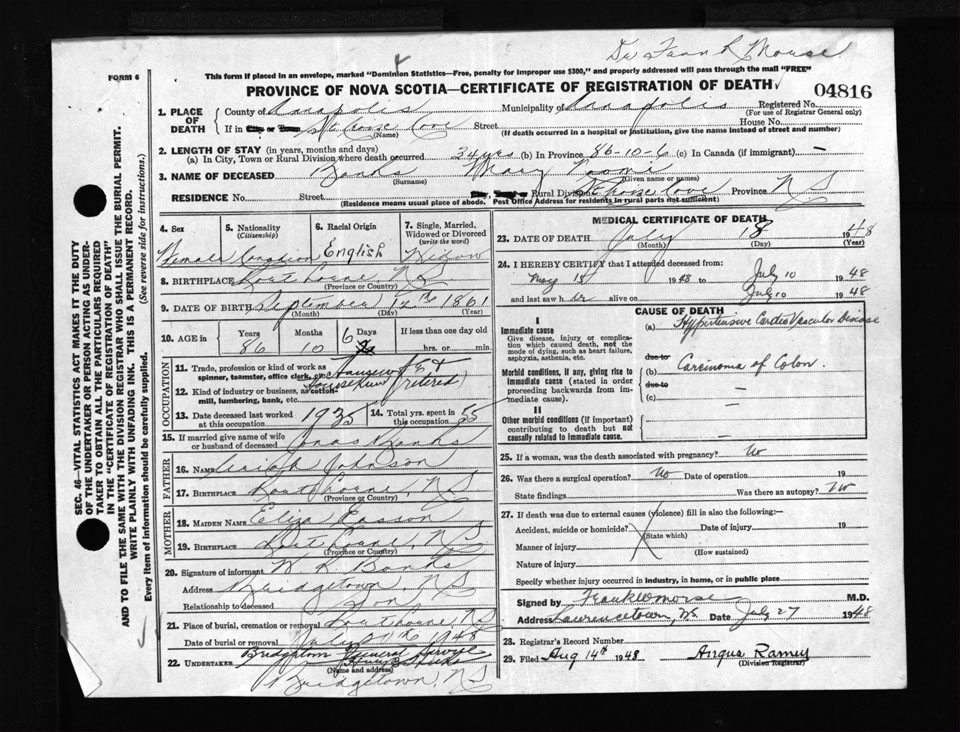 Dr Frank Morse
FORM 6
This form if placed in an envelope, marked "Dominion Statistics—Free, penalty for improper use $300," and properly addressed will pass through the mail "FREE"
PROVINCE OF NOVA SCOTIA—CERTIFICATE OF REGISTRATION OF DEATH
04816
1. PLACE OF DEATH
County of Annapolis Municipality of Annapolis Registered No.
(For use of Registrar General only)
If in City or Town St Croix Cove Street House No.
(Name) (If death occurred in a hospital or institution, give the name instead of street and number)
2. LENGTH OF STAY (in years, months and days)
(a) In City, Town or Rural Division where death occurred 34 yrs (b) In Province 86-10-6 (c) In Canada (if immigrant) —
3. NAME OF DECEASED Banks Mary
(Surname) (Given name or names)
RESIDENCE No. Street City, Town or Rural Division St Croix Cove Province N S
(Residence means usual place of abode. Post Office Address for residents in rural parts not sufficient)
4. Sex 5. Nationality (Citizenship) 6. Racial Origin 7. Single, Married, Widowed or Divorced (write the word)
Female Canadian English Widow
8. BIRTHPLACE N S
(Province or Country)
9. DATE OF BIRTH September 12th 1861
(Month) (Day) (Year)
10. AGE in Years Months Days If less than one day old
86 10 6 hrs. or min.
OCCUPATION
11. Trade, profession or kind of work as spinner, teamster, office clerk, etc. Housework
12. Kind of industry or business, as cotton-mill, lumbering, bank, etc. (retired)
13. Date deceased last worked at this occupation 1935 14. Total yrs. spent in this occupation 55
15. If married give name of wife or husband of deceased Jonas Banks
FATHER
16. Name Johnson
17. Birthplace N S
(Province or Country)
MOTHER
18. Maiden Name Eliza Easson
19. Birthplace N S
(Province or Country)
20. Signature of informant W R Banks
Address Bridgetown, N S
Relationship to deceased Son
21. Place of burial, cremation or removal
Date of burial or removal July 1948
22. UNDERTAKER Bridgetown Funeral Service
(Name and address)
Bridgetown, N S
MEDICAL CERTIFICATE OF DEATH
23. DATE OF DEATH July 18 1948
(Month) (Day) (Year)
24. I HEREBY CERTIFY that I attended deceased from:
May 15 1948 to July 10 1948
and last saw her alive on July 10 1948
CAUSE OF DEATH
I
Immediate cause
Give disease, injury or complication which caused death, not the mode of dying, such as heart failure, asphyxia, asthenia, etc.
(a) Hypertensive Cardio Vascular Disease
due to
Morbid conditions, if any, giving rise to immediate cause (stated in order proceeding backwards from immediate cause).
(b) Carcinoma of Colon.
due to
(c) —
II
Other morbid conditions (if important) contributing to death but not causally related to immediate cause.
—
25. If a woman, was the death associated with pregnancy? No
26. Was there a surgical operation? No Date of operation 19
State findings Was there an autopsy? No
27. If death was due to external causes (violence) fill in also the following:—
Accident, suicide or homicide? Date of injury 19
(State which)
Manner of injury
(How sustained)
Nature of injury
Specify whether injury occurred in industry, in home, or in public place
Signed by Frank W Morse M.D.
Lawrencetown, N.S. Date July 27 1948
28. Registrar's Record Number
29. Filed Aug 14th 1948 Angus Ramey
(Division Registrar)
SEC. 46—VITAL STATISTICS ACT MAKES IT THE DUTY
OF THE UNDERTAKER OR PERSON ACTING AS UNDERTAKER
TO OBTAIN ALL THE PARTICULARS REQUIRED
IN THE "CERTIFICATE OF REGISTRATION OF DEATH"
AND TO FILE THE SAME WITH THE DIVISION REGISTRAR WHO SHALL ISSUE THE BURIAL PERMIT.
WRITE PLAINLY WITH UNFADING INK. THIS IS A PERMANENT RECORD.
Every item of information should be carefully supplied. (See reverse side for instructions.)